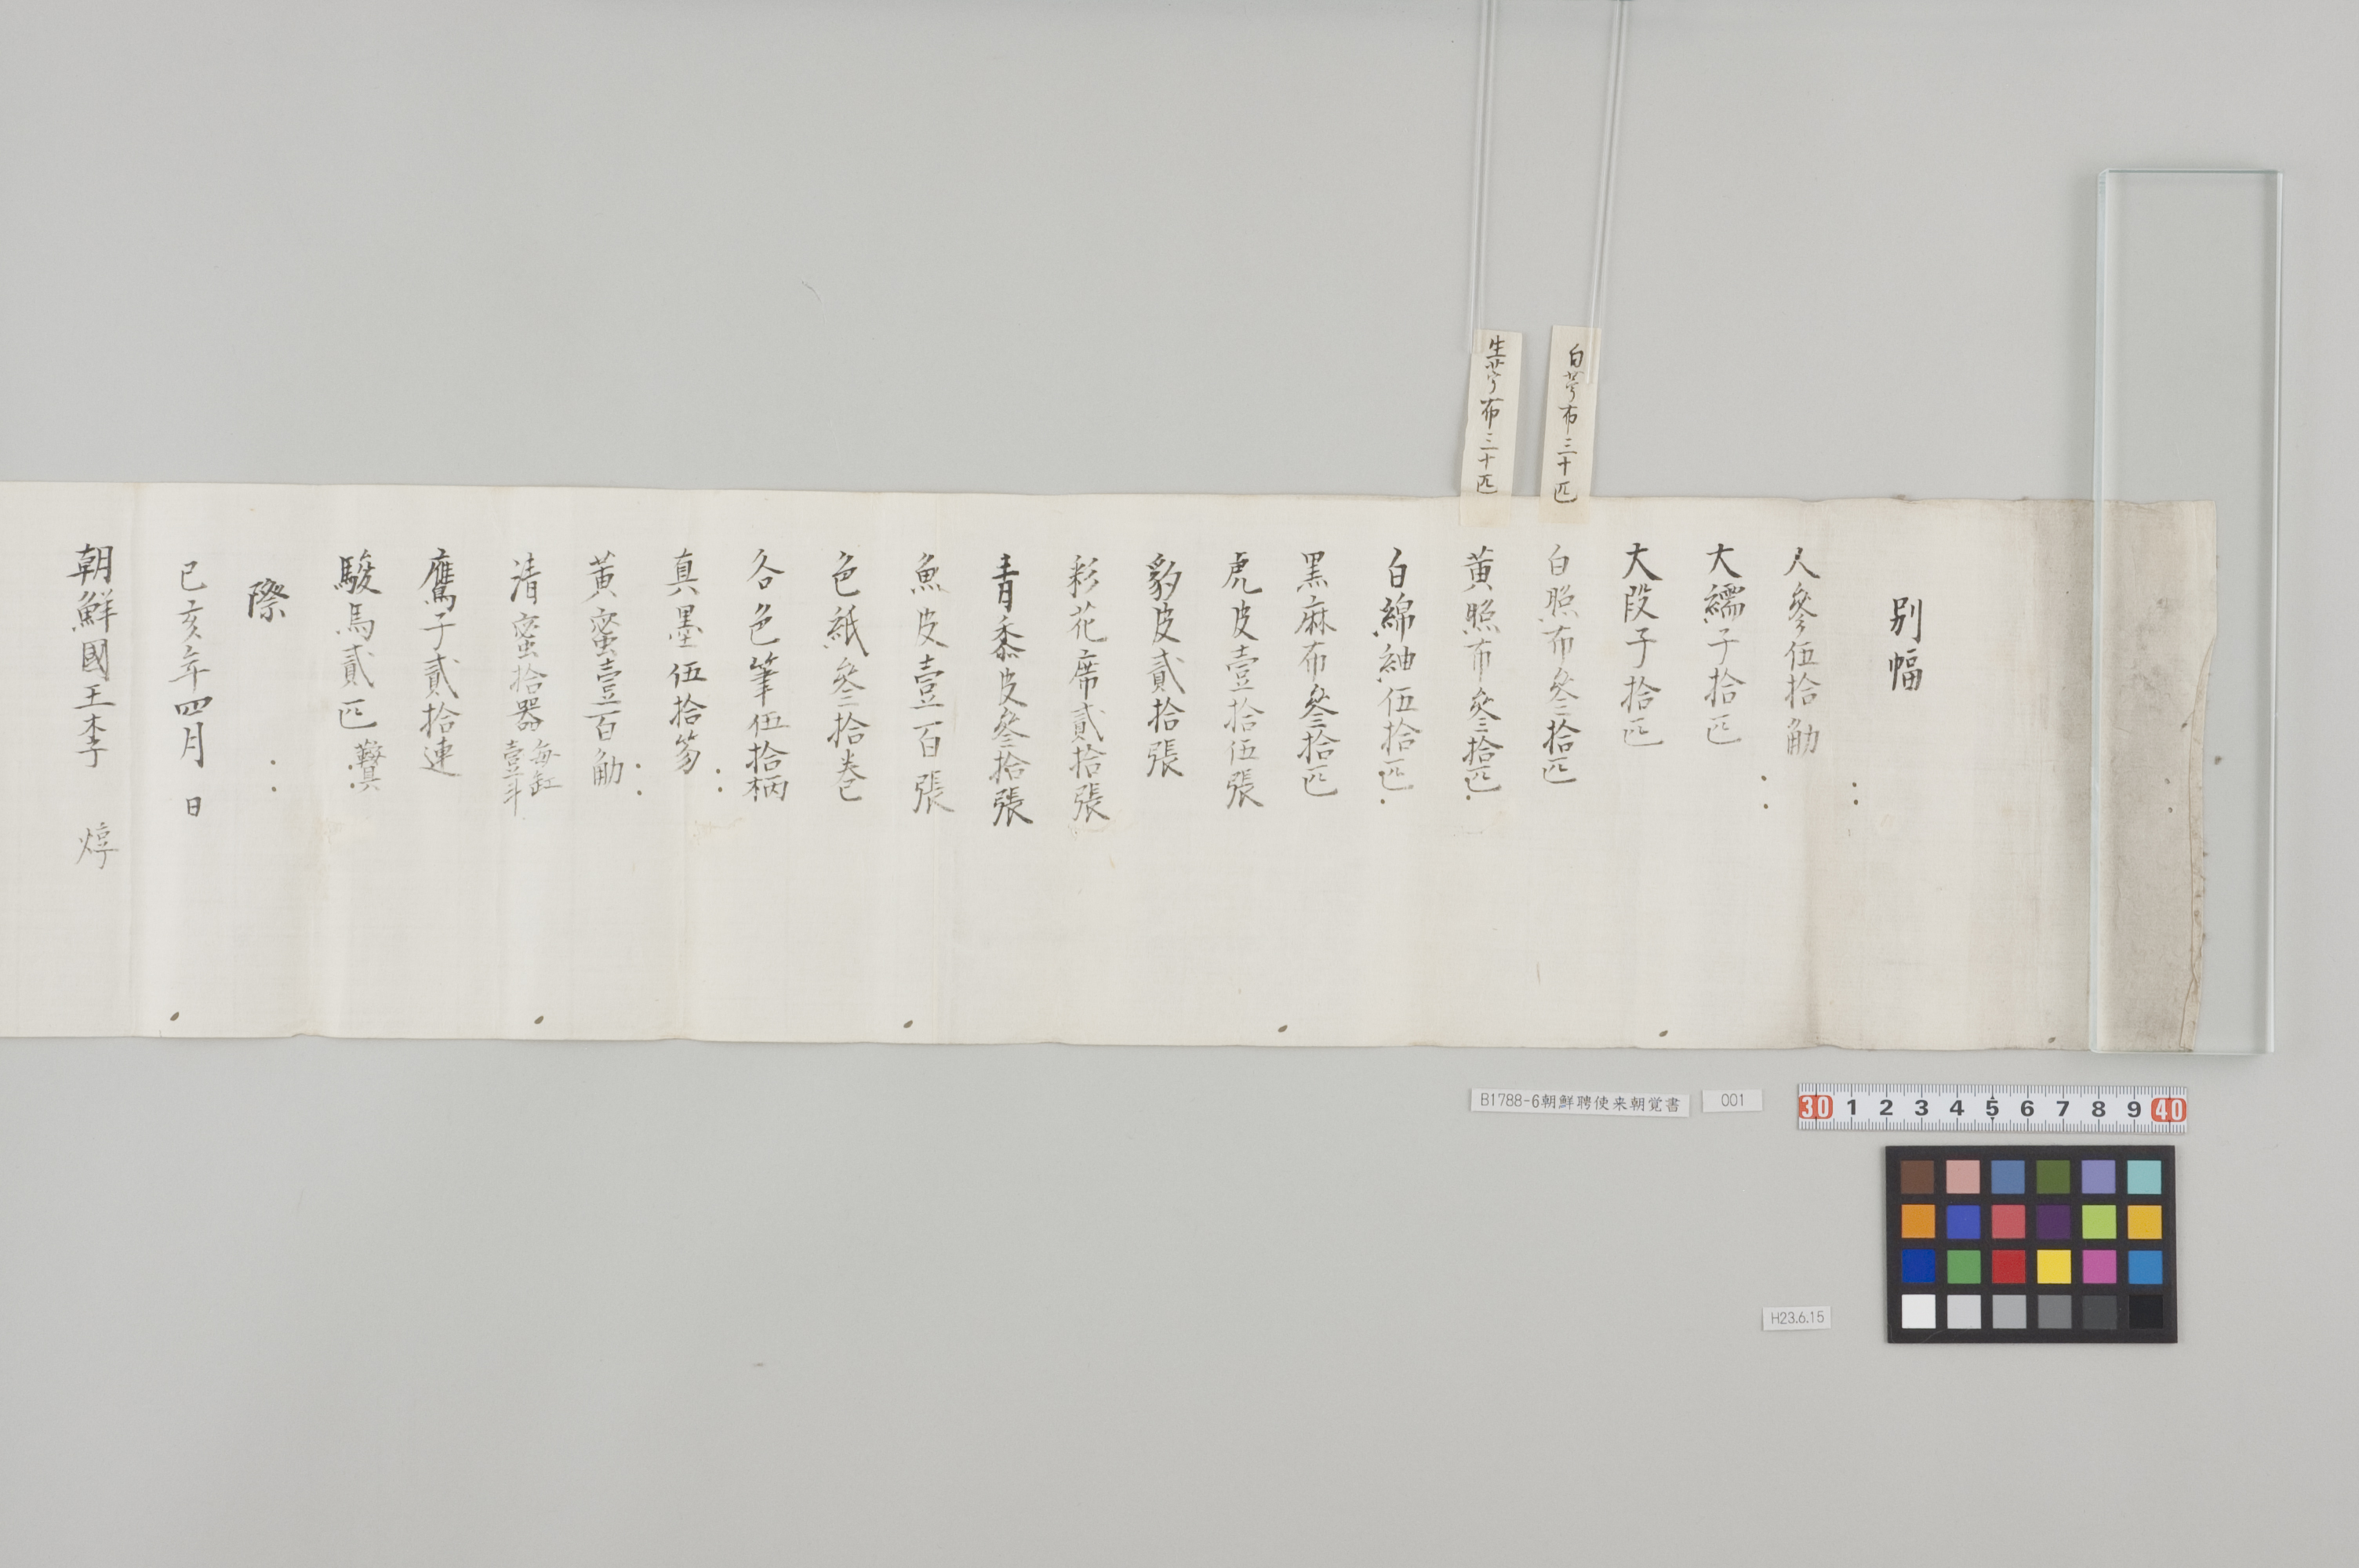 別幅
人參伍拾觔
大繻子拾匹
大段子拾匹
白苧布三十匹
白照布叄拾匹
生苧布三十匹
黄照布叄拾匹
白綿紬伍拾匹
黒麻布叄拾匹
虎皮壹拾伍張
豹皮貳拾張
彩花席貳拾張
青黍皮叄拾張
魚皮壹百張
色紙叄拾巻
各色筆伍拾柄
真墨伍拾笏
黄蜜壹百觔
清蜜拾器毎缸壹斗
鷹子貳拾連
駿馬貳匹鞍具
際
己亥年四月 日
朝鮮國王李 焞
B1788-6朝鮮聘使来朝覚書 001
30 1 2 3 4 5 6 7 8 9 40
H23.6.15